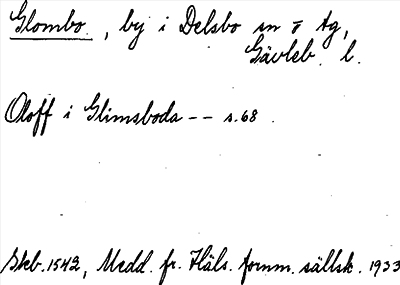 Glombo , by i Delsbo sn o tg,
Gävleb. l.
Oloff i Glimsboda -- s.68.
Skb. 1542, Medd. fr. Häls. fornm. sällsk. 1933